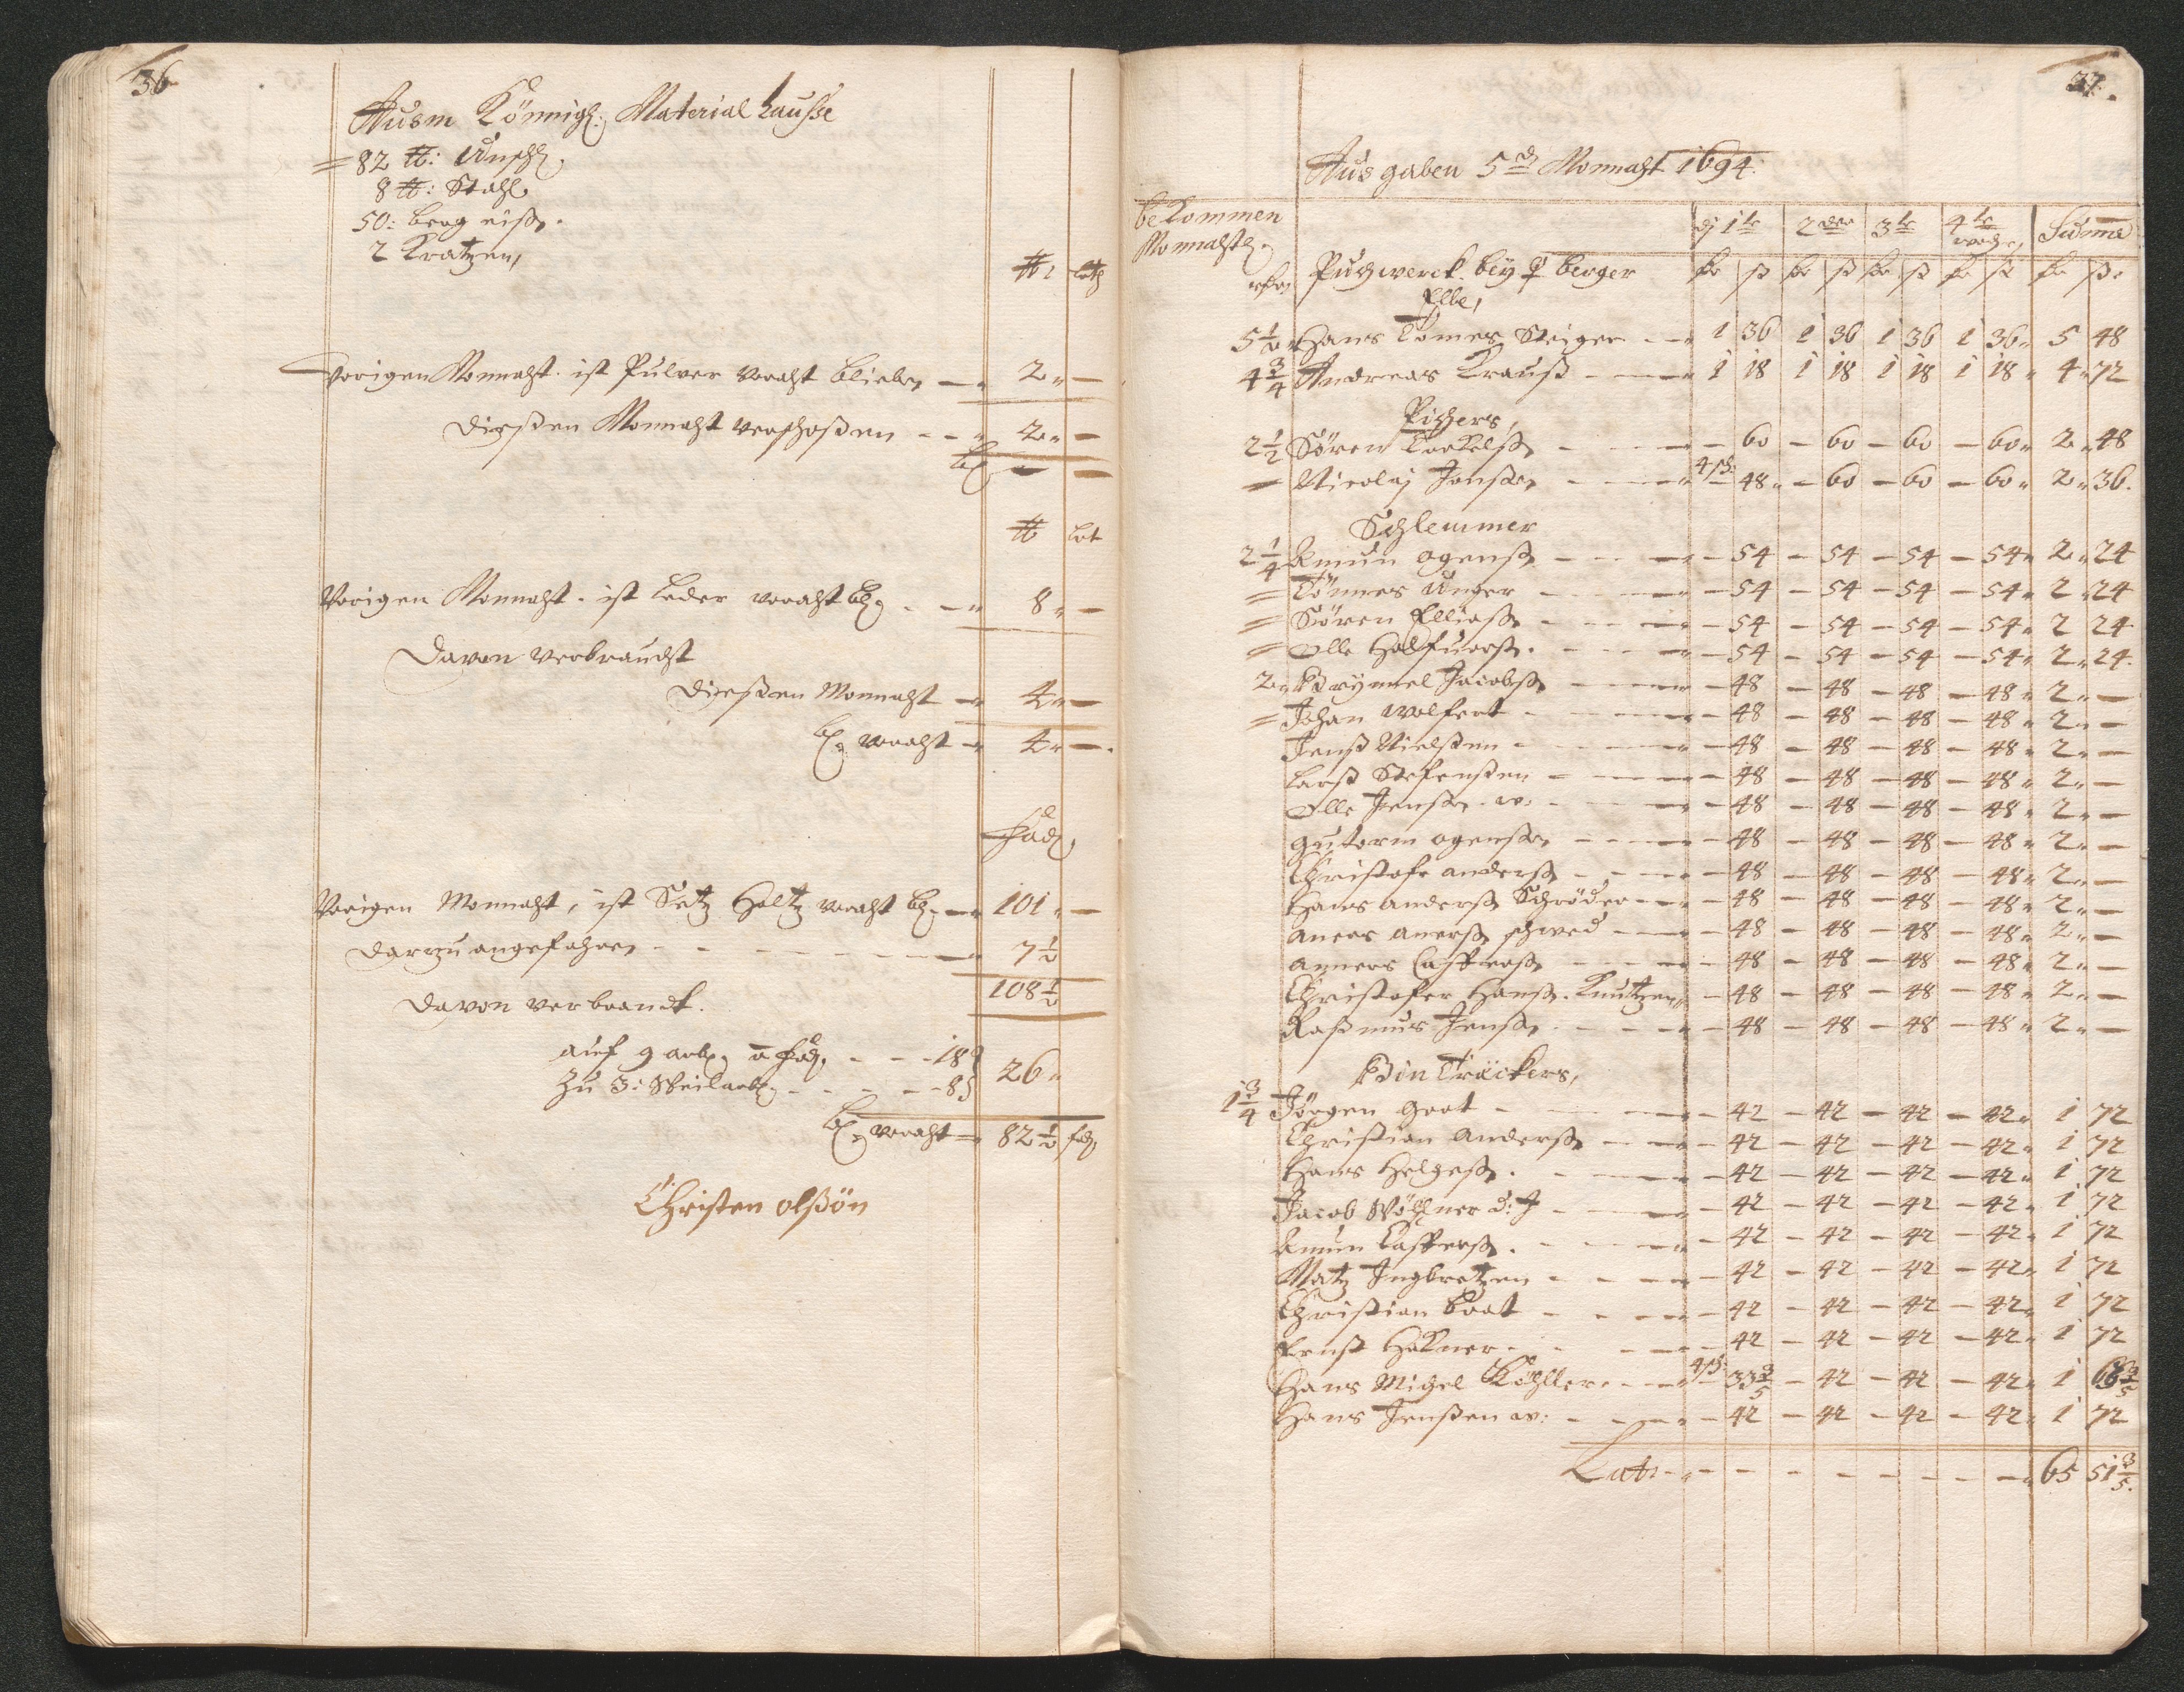 36
Ausm Königl: Material hausse
82 ℔: Unschl
8 ℔: Stahl
50: berg eiß.
2 Kratzen,
℔: loth
Vorigen Monnaht ist Pulver voraht blieben — 2 —
dießen Monnaht verschoßen — 2 —
bl — —
℔ Lot
Vorigen Monnaht. ist leder voraht bl. — 8 —
Davon verbraucht
dießen Monnaht — 4 —
bl. voraht — 4 —
fad
Vorigen Monnaht, ist Setz Holtz voraht bl. — 101 —
darzu angefahren — 7½
108½
Davon verbrandt.
auf 9 arb. a fad. — 18
26
Zu 3: Weilarb. — 8
bl. voraht — 82½ fad
Christen olßön
37.
Ausgaben 5d Monnaht 1694:
bekommen
Monnahtl.
d 1te 2der 3te 4te woche, Summa
Puchwerck bey berger
Elbe,
5½ Hans Tomes Steiger — 1 36 1 36 1 36 1 36 5 48
4¾ Andreas Krauß — 1 18 1 18 1 18 1 18 4 72
Pichers,
2½ Sören Torkelß — 60 — 60 — 60 — 60 2 48
= Nicolaj Jonßen — 4ß: 48 — 60 — 60 — 60 2 36.
Schlemmer
2¼ Amun ogenß — 54 — 54 — 54 — 54 2 24
= Tönnes Unger — 54 — 54 — 54 — 54 2 24
= Sören Elliaß — 54 — 54 — 54 — 54 2 24
= Olle Halfuorß. — 54 — 54 — 54 — 54 2 24.
2 Brynnel Jacobß — 48 — 48 — 48 — 48 2 —
= Johan Wolfert — 48 — 48 — 48 — 48 2 —
Jenß Nielßen — 48 — 48 — 48 — 48 2 —
Larß Stefenßen — 48 — 48 — 48 — 48 2 —
Olle Jenßen w: — 48 — 48 — 48 — 48 2 —
Gutorm ogenßen — 48 — 48 — 48 — 48 2 —
Christofe anderß — 48 — 48 — 48 — 48 2 —
Hans anderß Schröder — 48 — 48 — 48 — 48 2 —
Aners anerß schwed — 48 — 48 — 48 — 48 2 —
Anners Casperß — 48 — 48 — 48 — 48 2 —
Christofer Hanß. Knutzen — 48 — 48 — 48 — 48 2 —
Raßmus Jenß — 48 — 48 — 48 — 48 2 —
Bin Träckers,
1¾ Jörgen Grot — 42 — 42 — 42 — 42 1 72
Christian Anderß — 42 — 42 — 42 — 42 1 72
Hans Helgeß. — 42 — 42 — 42 — 42 1 72
Jacob Wöllner d: J — 42 — 42 — 42 — 42 1 72
Amun Casperß. — 42 — 42 — 42 — 42 1 72
Matz Ingbretzen — 42 — 42 — 42 — 42 1 72
Christian Boot — 42 — 42 — 42 — 42 1 72
Ernst Hökner — 42 — 42 — 42 — 42 1 72
Hans Michel Köhller — 4ß: 33⅗ — 42 — 42 — 42 1 63⅗
Hans Jenßen w: — 42 — 42 — 42 — 42 1 72
Lats — 65 51⅗.